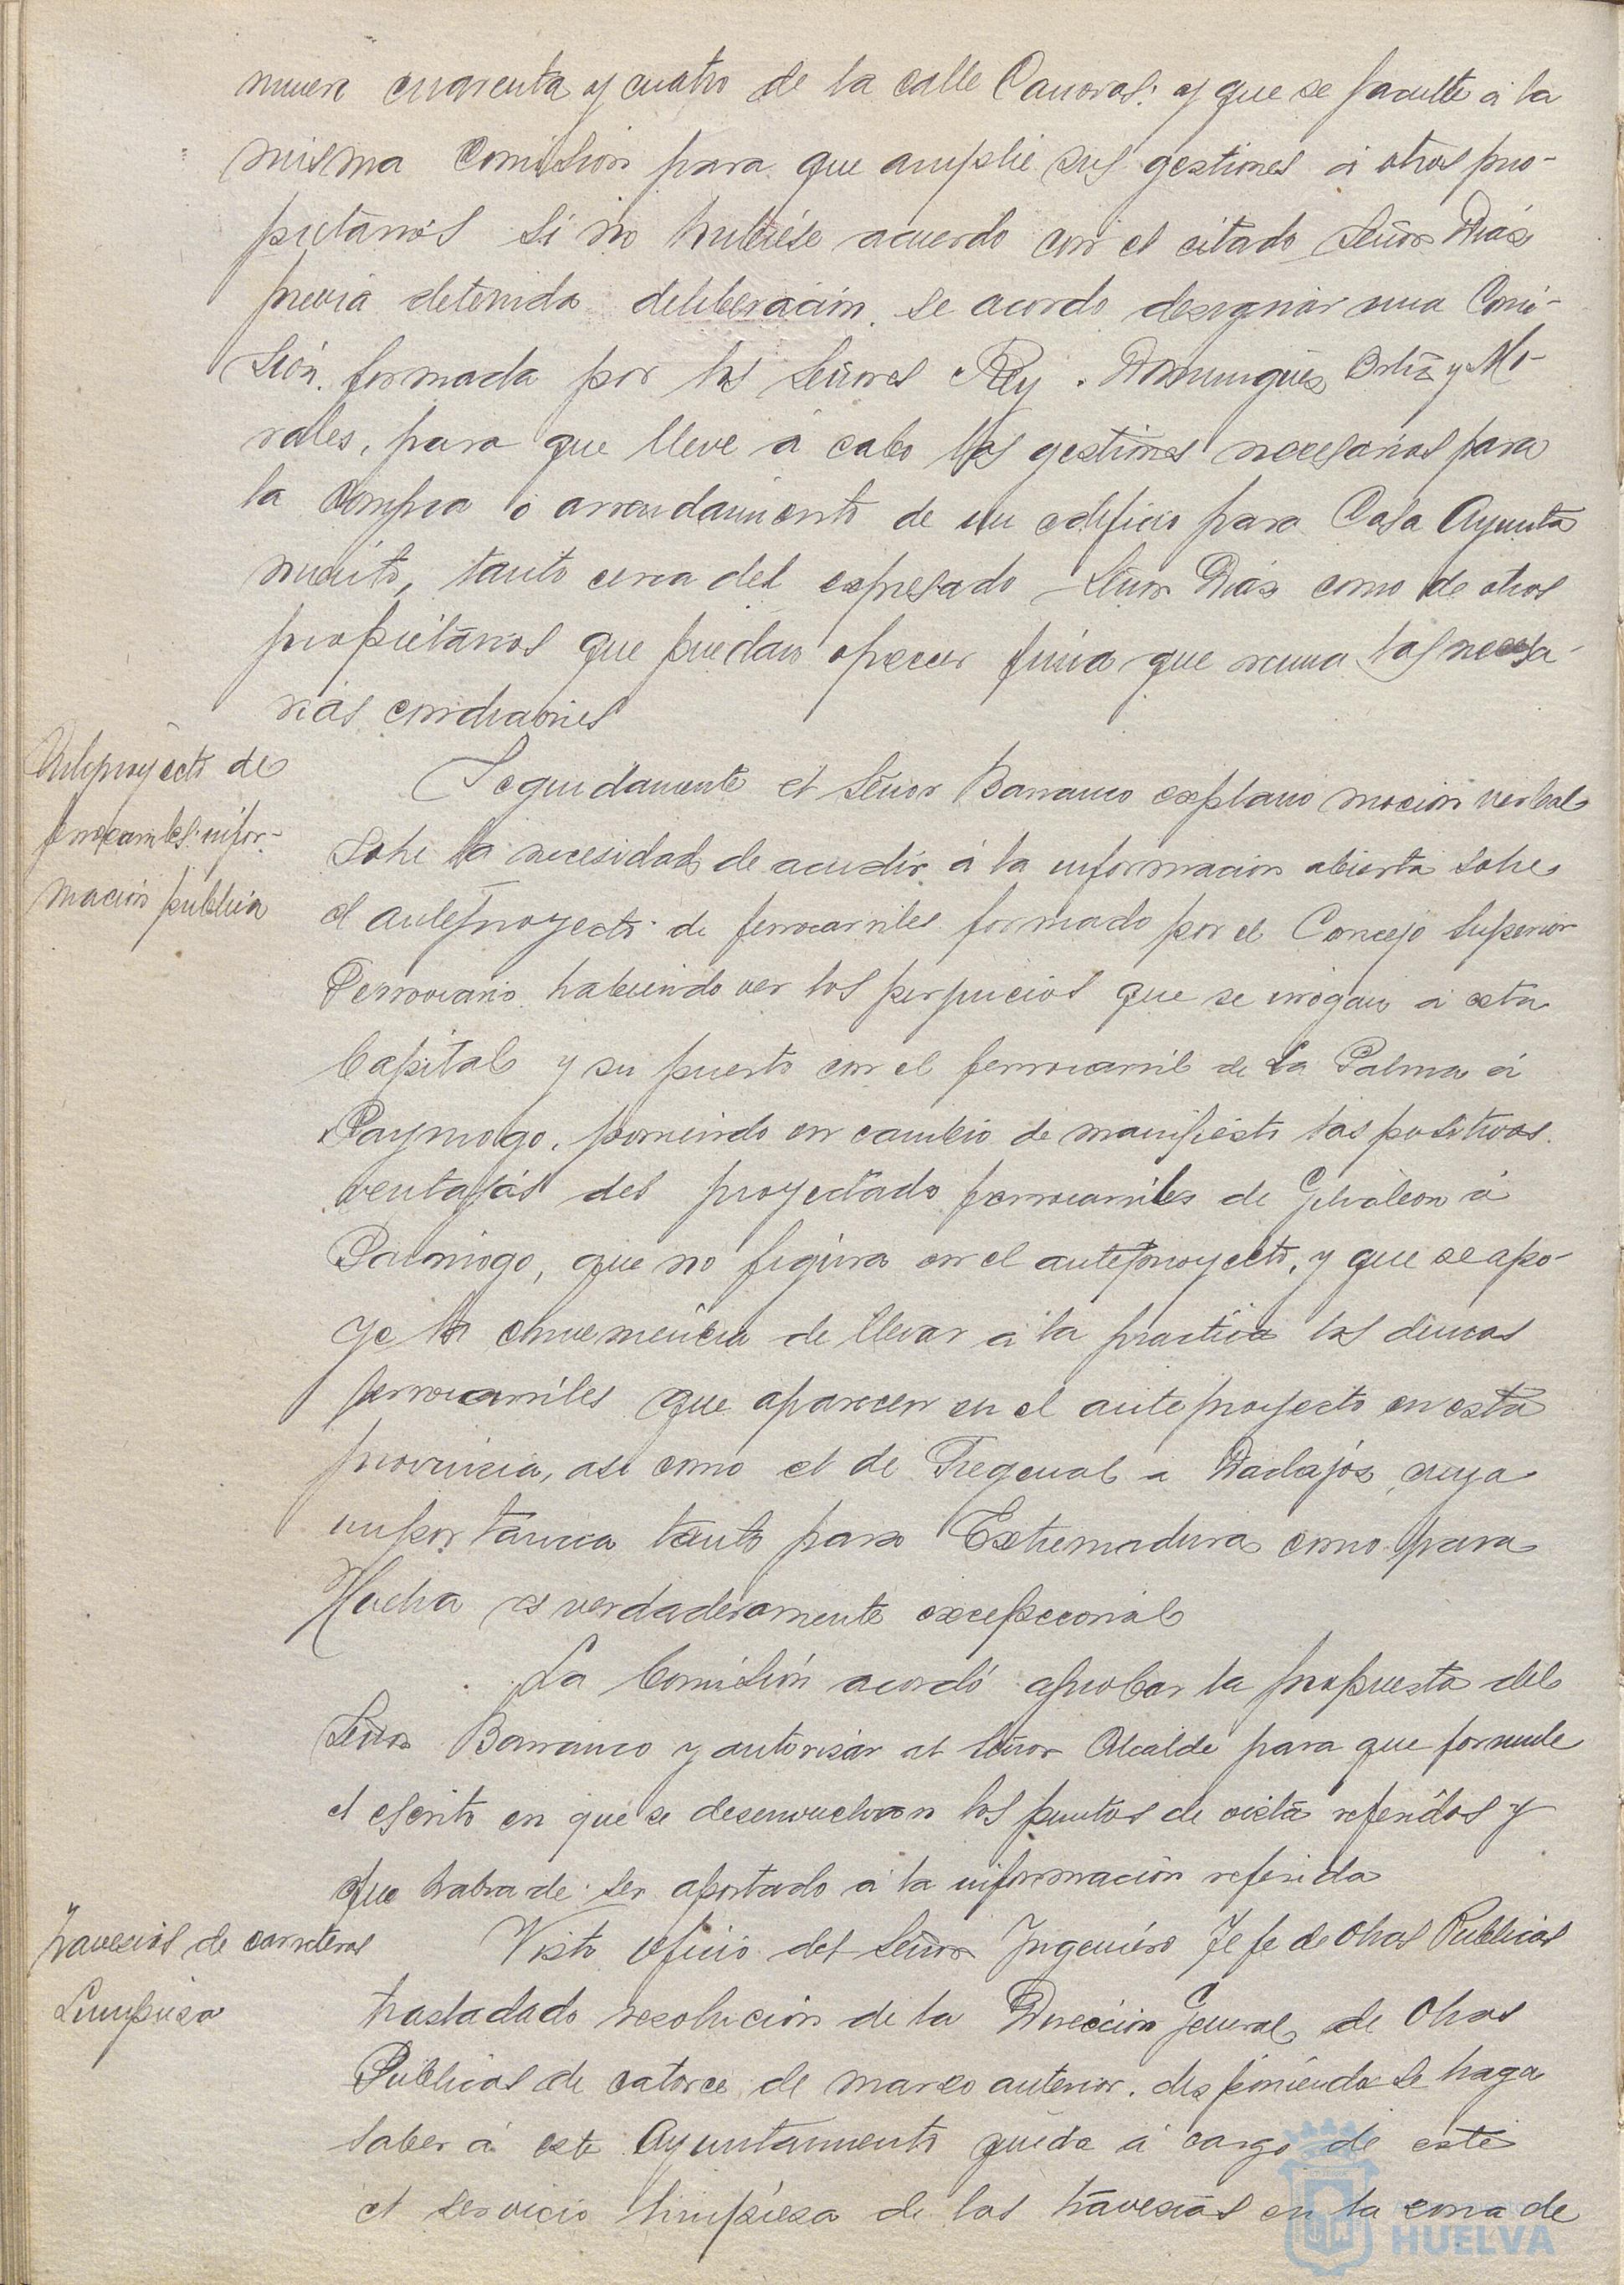 numero cuarenta y cuatro de la calle Canovas: y que se faculte á la
misma Comision para que amplie sus gestiones á otros pro-
pietarios si no hubiese acuerdo con el citado Señor Diáz
previa detenida deliberación. se acordo designar una Comi-
sión. formada por los Señores Rey. Dominguez Ortiz y Mo-
rales, para que lleve á cabo las gestiones necesarias para
la compra ó arrendamiento de un edificio para Casa Ayunta
miento, tanto cerca del expresado Señor Diáz como de otros
propietarios que puedan ofrecer finca que reuna las necesa-
rias condiciones
Anteproyecto de
ferrocarriles: infor-
macion publica
Seguidamente el Señor Barranco explano mocion verbal
sobre la necesidad de acudir á la informacion abierta sobre
el anteproyecto de ferrocarriles formado por el Concejo Superior
Ferroviario haciendo ver los perjuicios que se irrogan á esta
Capital y su puerto con el ferrocarril de La Palma á
Paymogo, poniendo en cambio de manifiesto las positivas
ventajas del proyectado ferrocarriles de Gibraleon á
Paimogo, que no figura en el anteproyecto, y que se apo-
ye la conveniencia de llevar á la practica los demas
ferrocarriles que aparecen en el anteproyecto en esta
provincia, asi como el de Fregenal a Badajóz, cuya
importancia tanto para Extremadura como para
Huelva es verdaderamente excepcional
La Comisión acordó aprobar la propuesta del
Señor Barranco y autorizar al Señor Alcalde para que formule
el escrito en que se desenvuelvan los puntos de vista referidos y
que habra de ser aportado á la información referida
Travesias de carreteras
Limpieza
Visto oficio del Señor Ingeniero Jefe de Obras Publicas
trasladado resolución de la Dirección General de Obras
Públicas de catorce de marzo anterior. disponiendo se haga
saber á este Ayuntamiento queda á cargo de este
el servicio limpieza de las travesias en la zona de
HUELVA